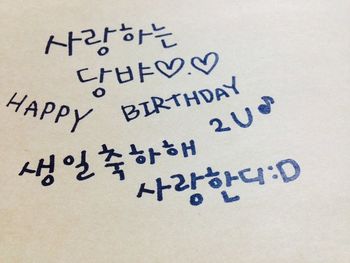 사랑하는
당뱌♡.♡
HAPPY BIRTHDAY
2U♪
생일축하해
사랑한디:D